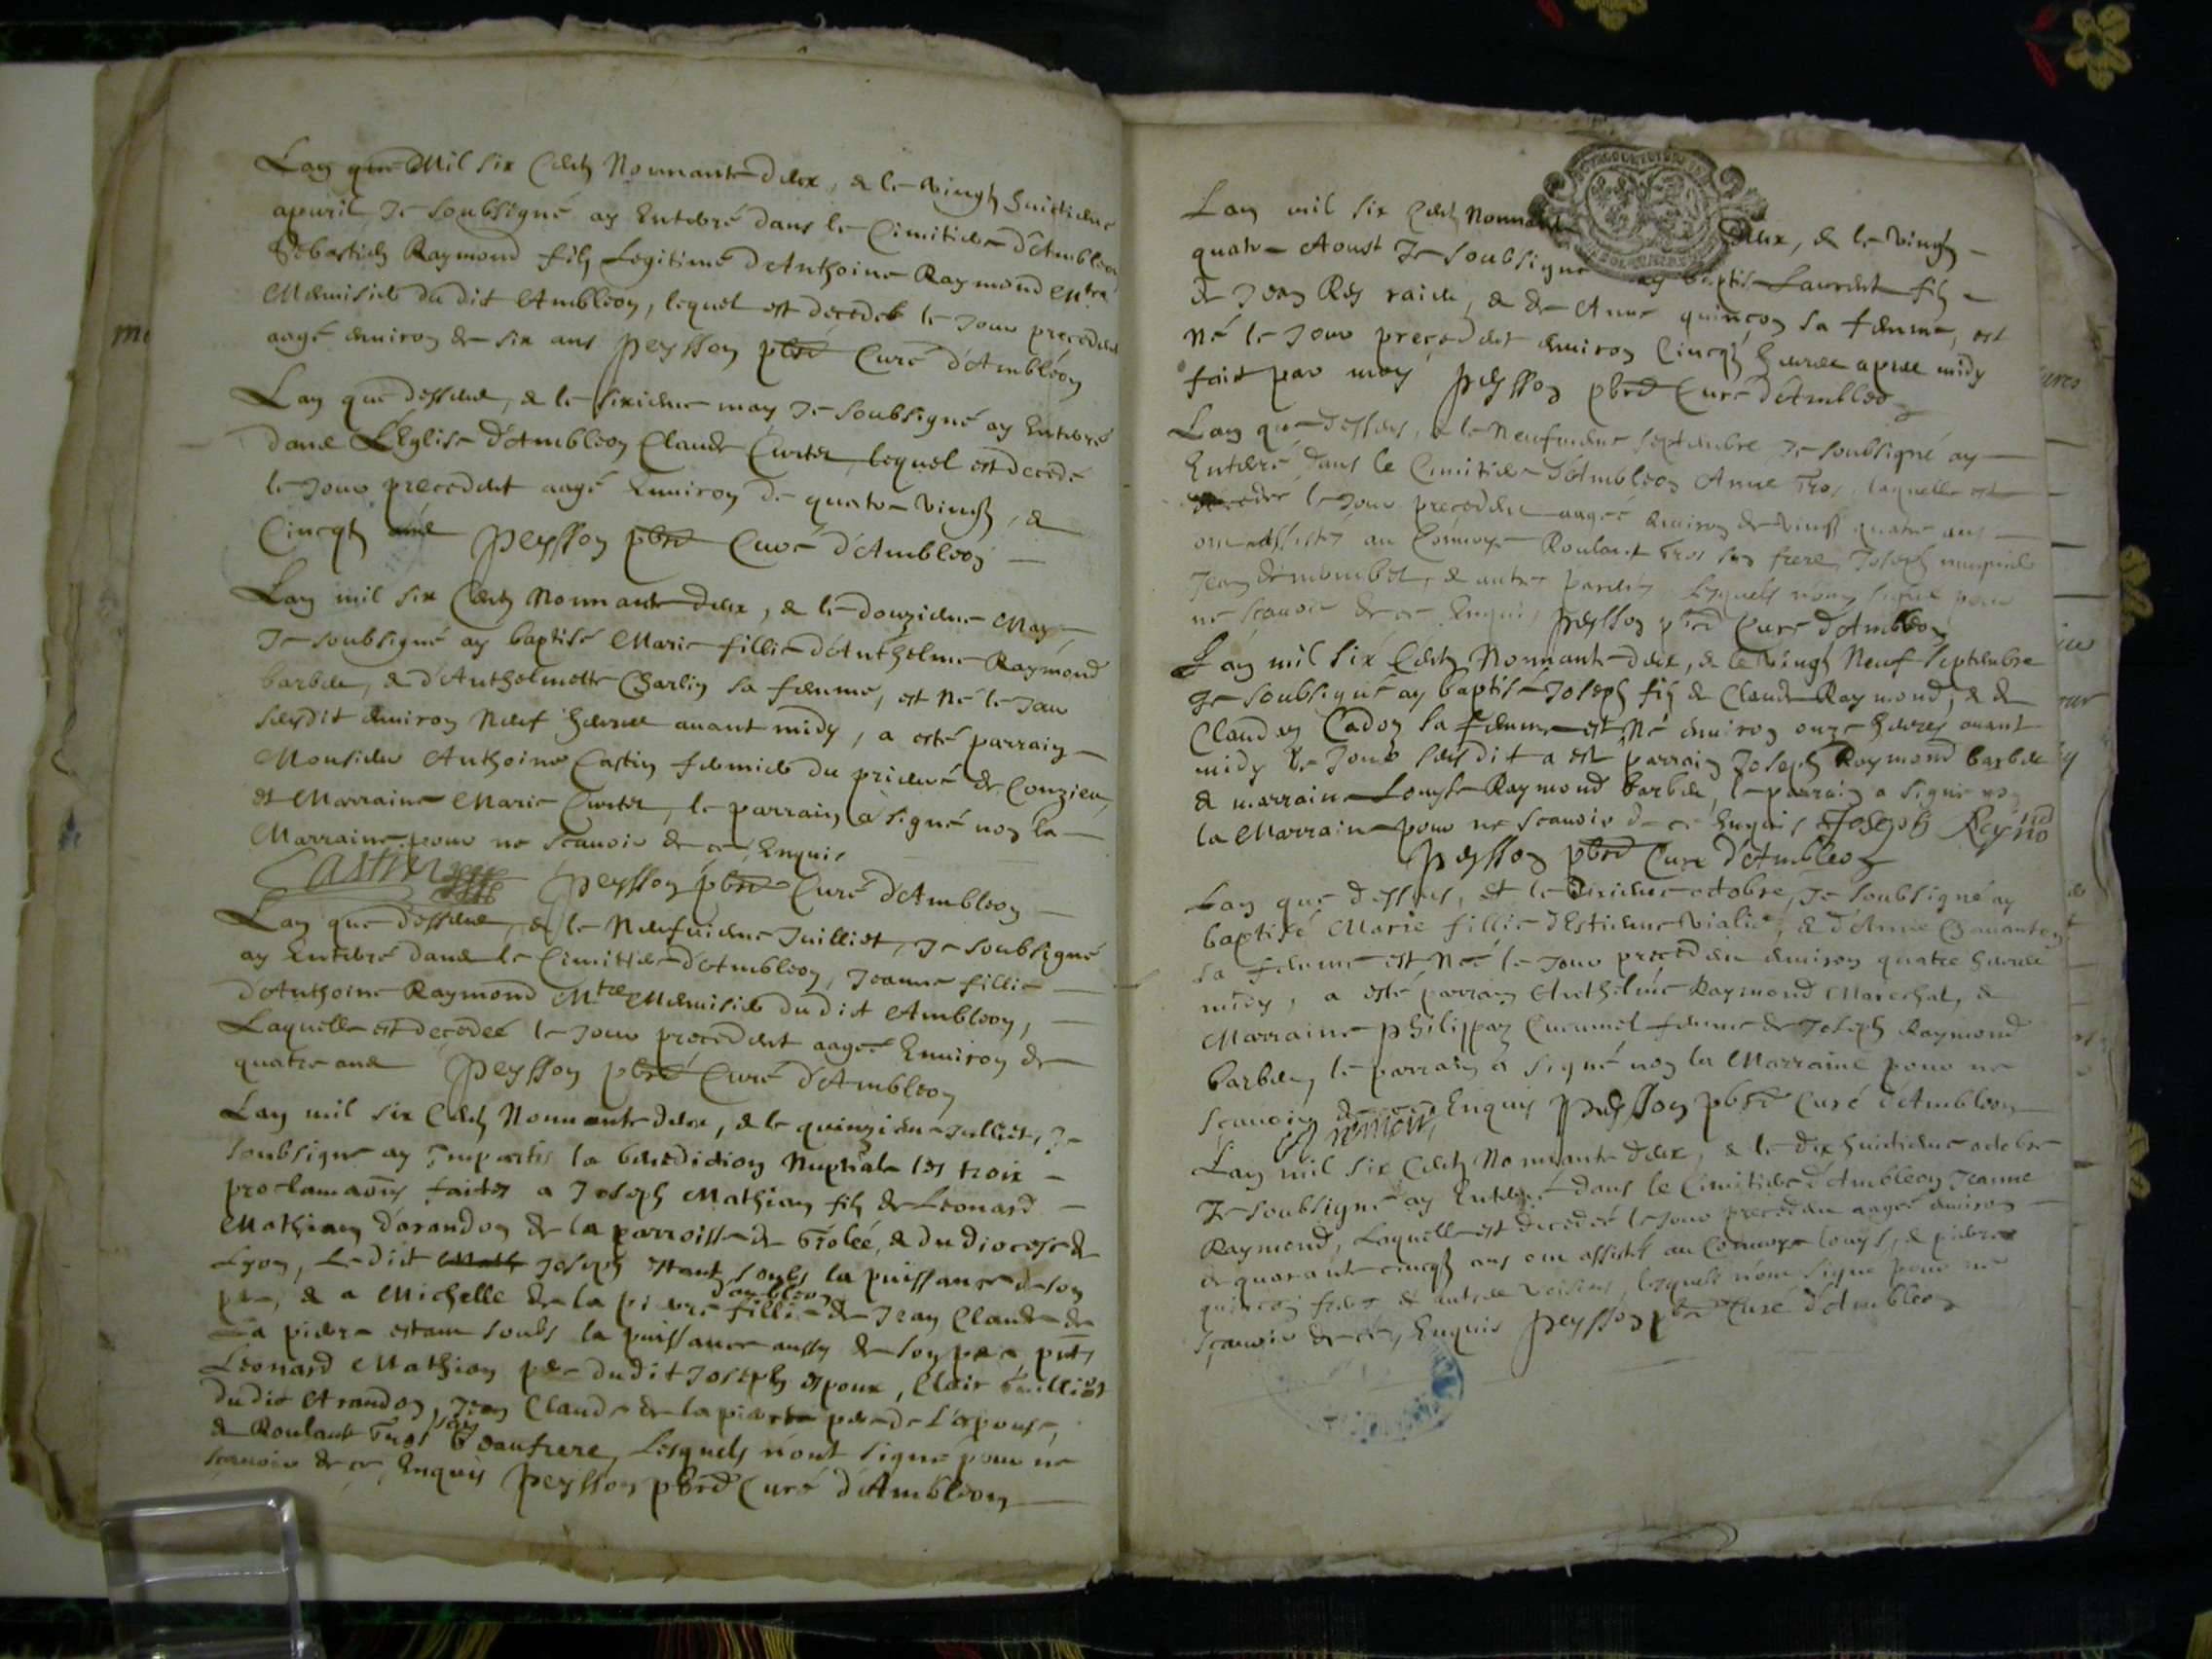 Lan que Mil six Centz Nonnante deux, & le vingt huictieme
apvril Je soubsigné ay Enterré dans le Cimitiere d'Ambleon
Sebastien Raymond filz Legitime d'Anthoine Raymond Mtre
Menuisier du dit Ambleon, lequel est decedé le Jour precedent
aagé environ de six ans Peysson pbre Curé d'Ambléon
Lan que dessus, & le sixieme may Je soubsigné ay Enterré
dans L'Eglise d'Ambleon Claude Curtet, lequel est decedé
le Jour precedent aagé Environ de quatre vingtz, &
Cincqz ans Peysson pbre Curé d'Ambleon
Lan mil six Centz Nonnante deux, & le douzieme May
Je soubsigné ay baptisé Marie fillie d'Anthelme Raymond
barbier, & d'Anthelmette Charlin sa femme, est Né le Jour
susdit environ Neuf heures avant midy, a esté parrain
Monsieur Anthoine Castin fermier du prieuré de Conzieu,
et Marraine Marie Curtet, le parrain a signé non la
Marraine pour ne scavoir de ce, Enquis
Castin Peysson pbre Curé d'Ambleon
Lan que dessus, & le Neufvieme Juilliet, Je soubsigné
ay Enterré dans le Cimitiere d'Ambleon, Jeanne fillie
d'Anthoine Raymond Mtre Menuisier du dit Ambleon,
Laquelle est decedeé le Jour precedent aageé Environ de
quatre ans Peysson pbre Curé d'Ambleon
Lan mil six Centz Nonnante deux, & le quinzieme Julliet, Je
soubsigne ay Imparti la benediction Nuptiale les trois
proclamaōns faites a Joseph Mathian filz de Leonard
Mathian d'arandon de la parroisse de & du diocese de
Lyon, Le dit Joseph estant soubs la puissance de son
d'ambleon
pere, & a Michelle de la pierre fillie de Jean Claude de
La pierre estant soubs la puissance aussy de son pere, pnts
Leonard Mathian pere du dit Joseph espoux, Clair
du dit Arandon, Jean Claude de la pierre pere de L'espouse,
son
& Roulant Tros beaufrere, Lesquels n'ont signé pour ne
scavoir de ce, Enquis Peysson pbre Curé d'Ambleon
Lan mil six Centz Nonnante deux, & le vingt
quatre Aoust Je soubsigné ay baptisé Laurent filz
de Jean Rey & de Anne quinson sa femme, est
né le Jour precedent environ Cincqz heures apres midy
fait par moy Peysson pbre Curé d'Ambleon
Lan que dessus, & le Neufvieme septembre Je soubsigné ay
Enterré dans le Cimitiere d'Ambleon Anne Tros, laquelle est
decedeé le Jour precedent aageé environ de vingt quatre ans
ont assistés au Convoye Roulant Tros son frere, Joseph
Jean & autres parents, Lesquels n'ont signé pour
ne scavoir de ce Enquis, Peysson pbre Curé d'Ambleon
Lan mil six Centz Nonnante deux, & le vingt Neuf septembre
Je soubsigné ay baptisé Joseph filz de Claude Raymond, & de
Claudaz Cadoz sa femme est Né environ onze heures avant
midy le Jour susdit a est parrain Joseph Raymond barbier
& marraine Louyse Raymond barbier, le parrain a signé non
la Marraine pour ne scavoir de ce Enquis Joseph Reymond
Peysson pbre Curé d'Ambleon
Lan que dessus, et le dixieme octobre, Je soubsigné ay
baptisé Marie fillie d'Estienne & d'Anne
sa femme est Née le Jour precedent environ quatre heures
midy, a esté parrain Anthelme Raymond Mareschal, &
Marraine Philippaz femme de Joseph Raymond
barbier, le parrain a signé non la Marraine pour ne
scavoir de ce Enquis Peysson pbre Curé d'Ambleon
Lan mil six Centz Nonnante deux, & le dix huictieme octobre
Je soubsigné ay Enterré dans le Cimitiere d'Ambleon Jeanne
Raymond, Laquelle est decedeé le Jour precedent aageé environ
de quarante cincqz ans ont assistés au Convoye louys, & pierre
quinson freres & autres voisins, lesquels n'ont signé pour ne
scavoir de ce, Enquis Peysson pbre Curé d'Ambleon